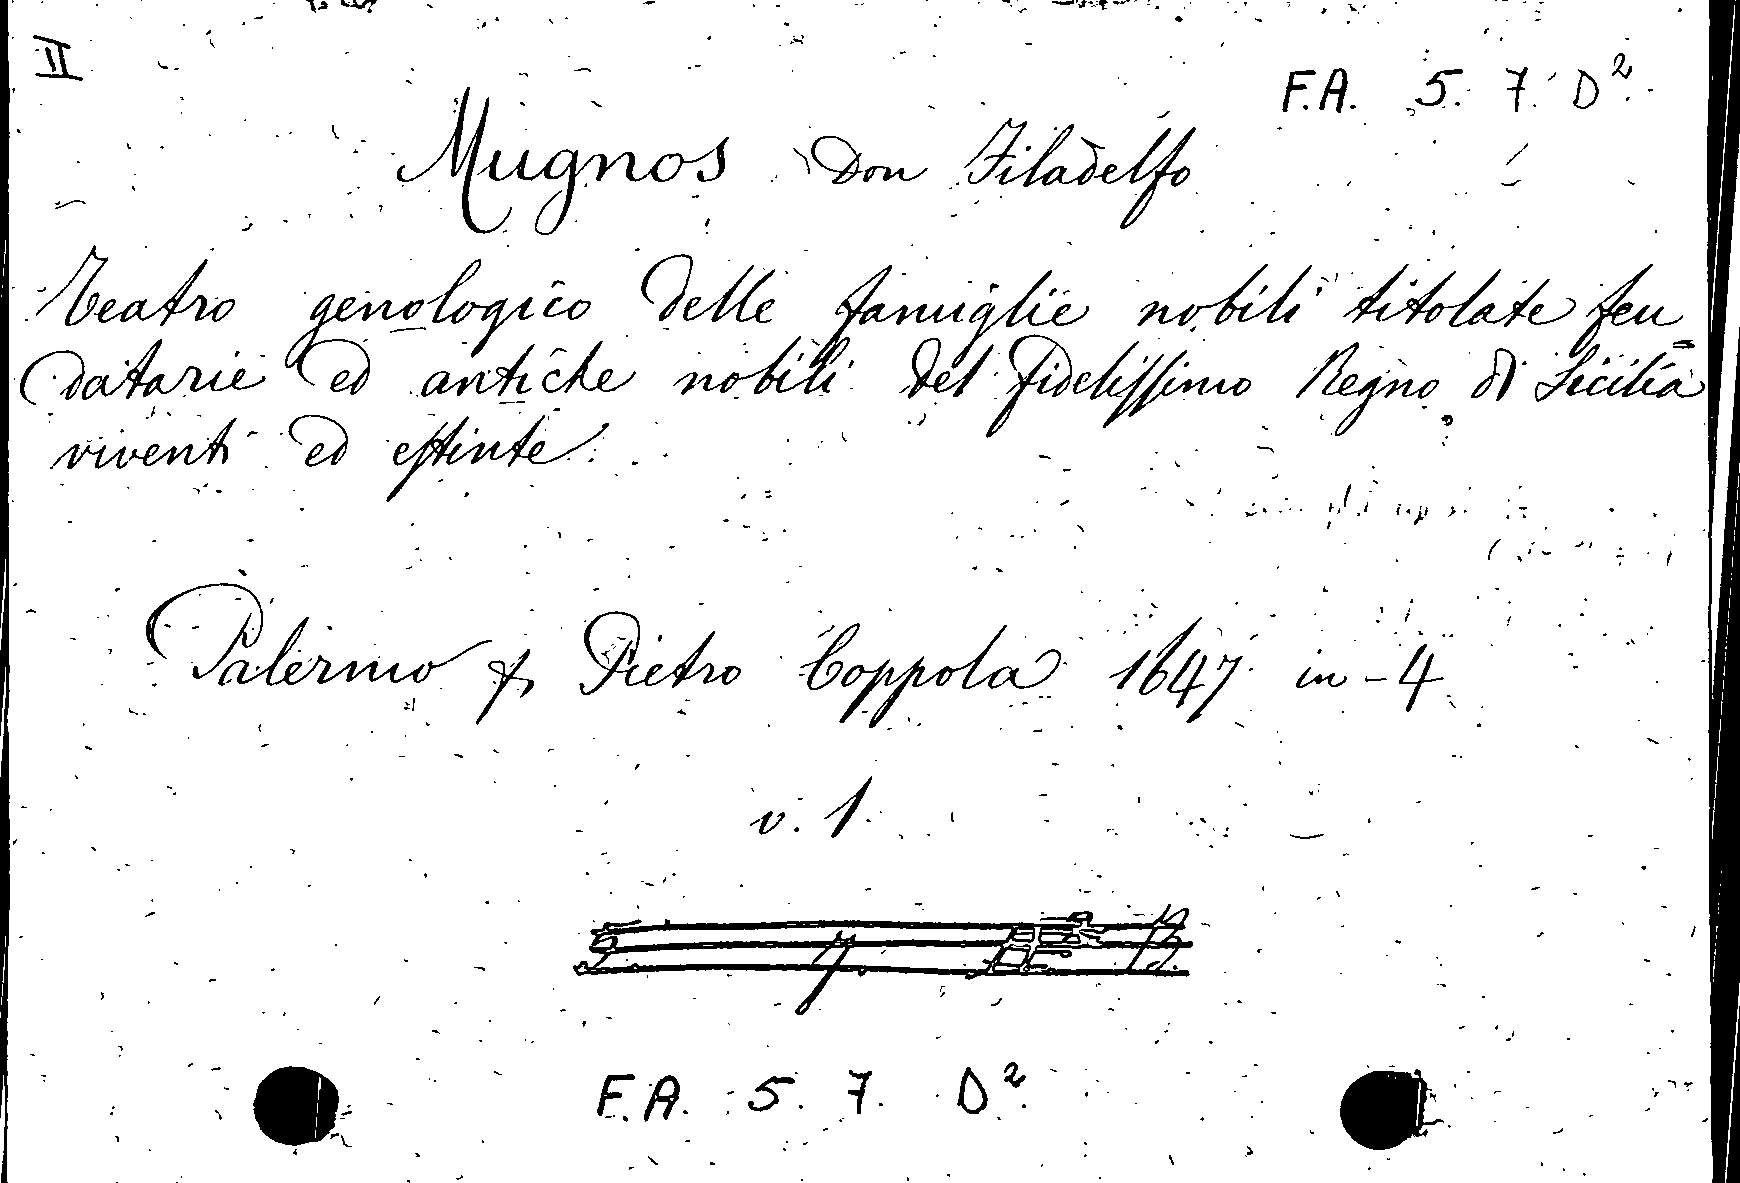 II
F.A. 5. 7. D².
Mugnos Don Filadelfo
Teatro genologico delle famiglie nobili titolate feu=
datarie ed antiche nobili del fidelissimo Regno di Sicilia
viventi ed estinte.
Palermo p. Pietro Coppola 1647 in-4
v. 1.
F.A. 5. 7. D².